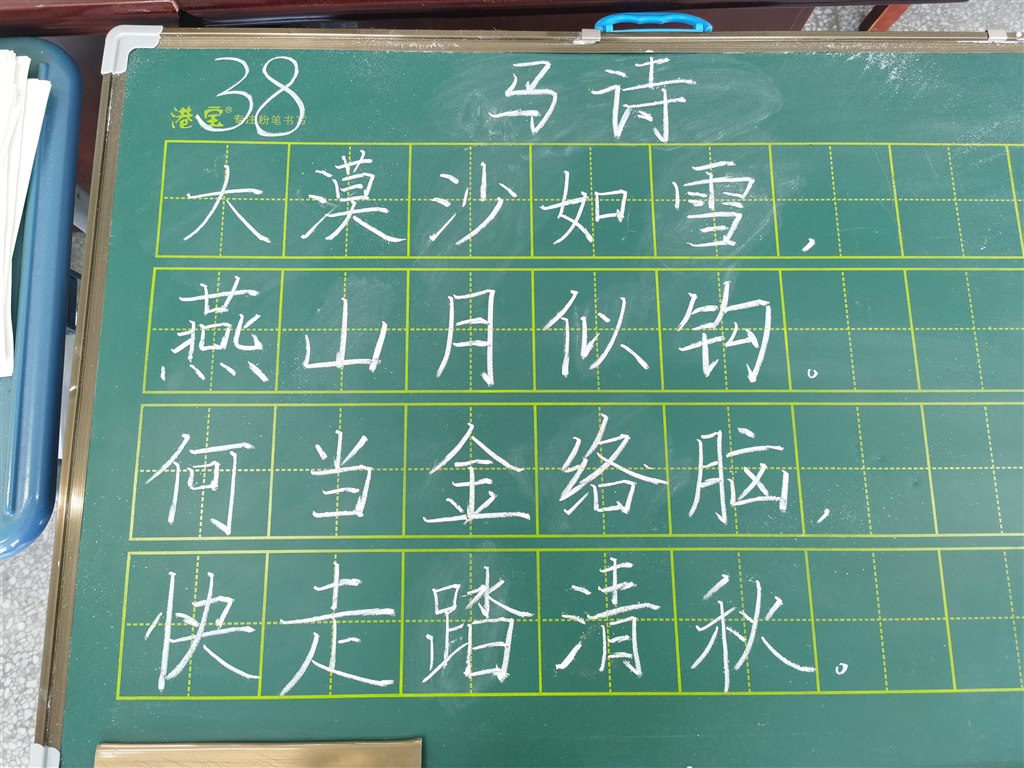 38 马诗
港宝® 专注粉笔书写
大漠沙如雪，
燕山月似钩。
何当金络脑，
快走踏清秋。